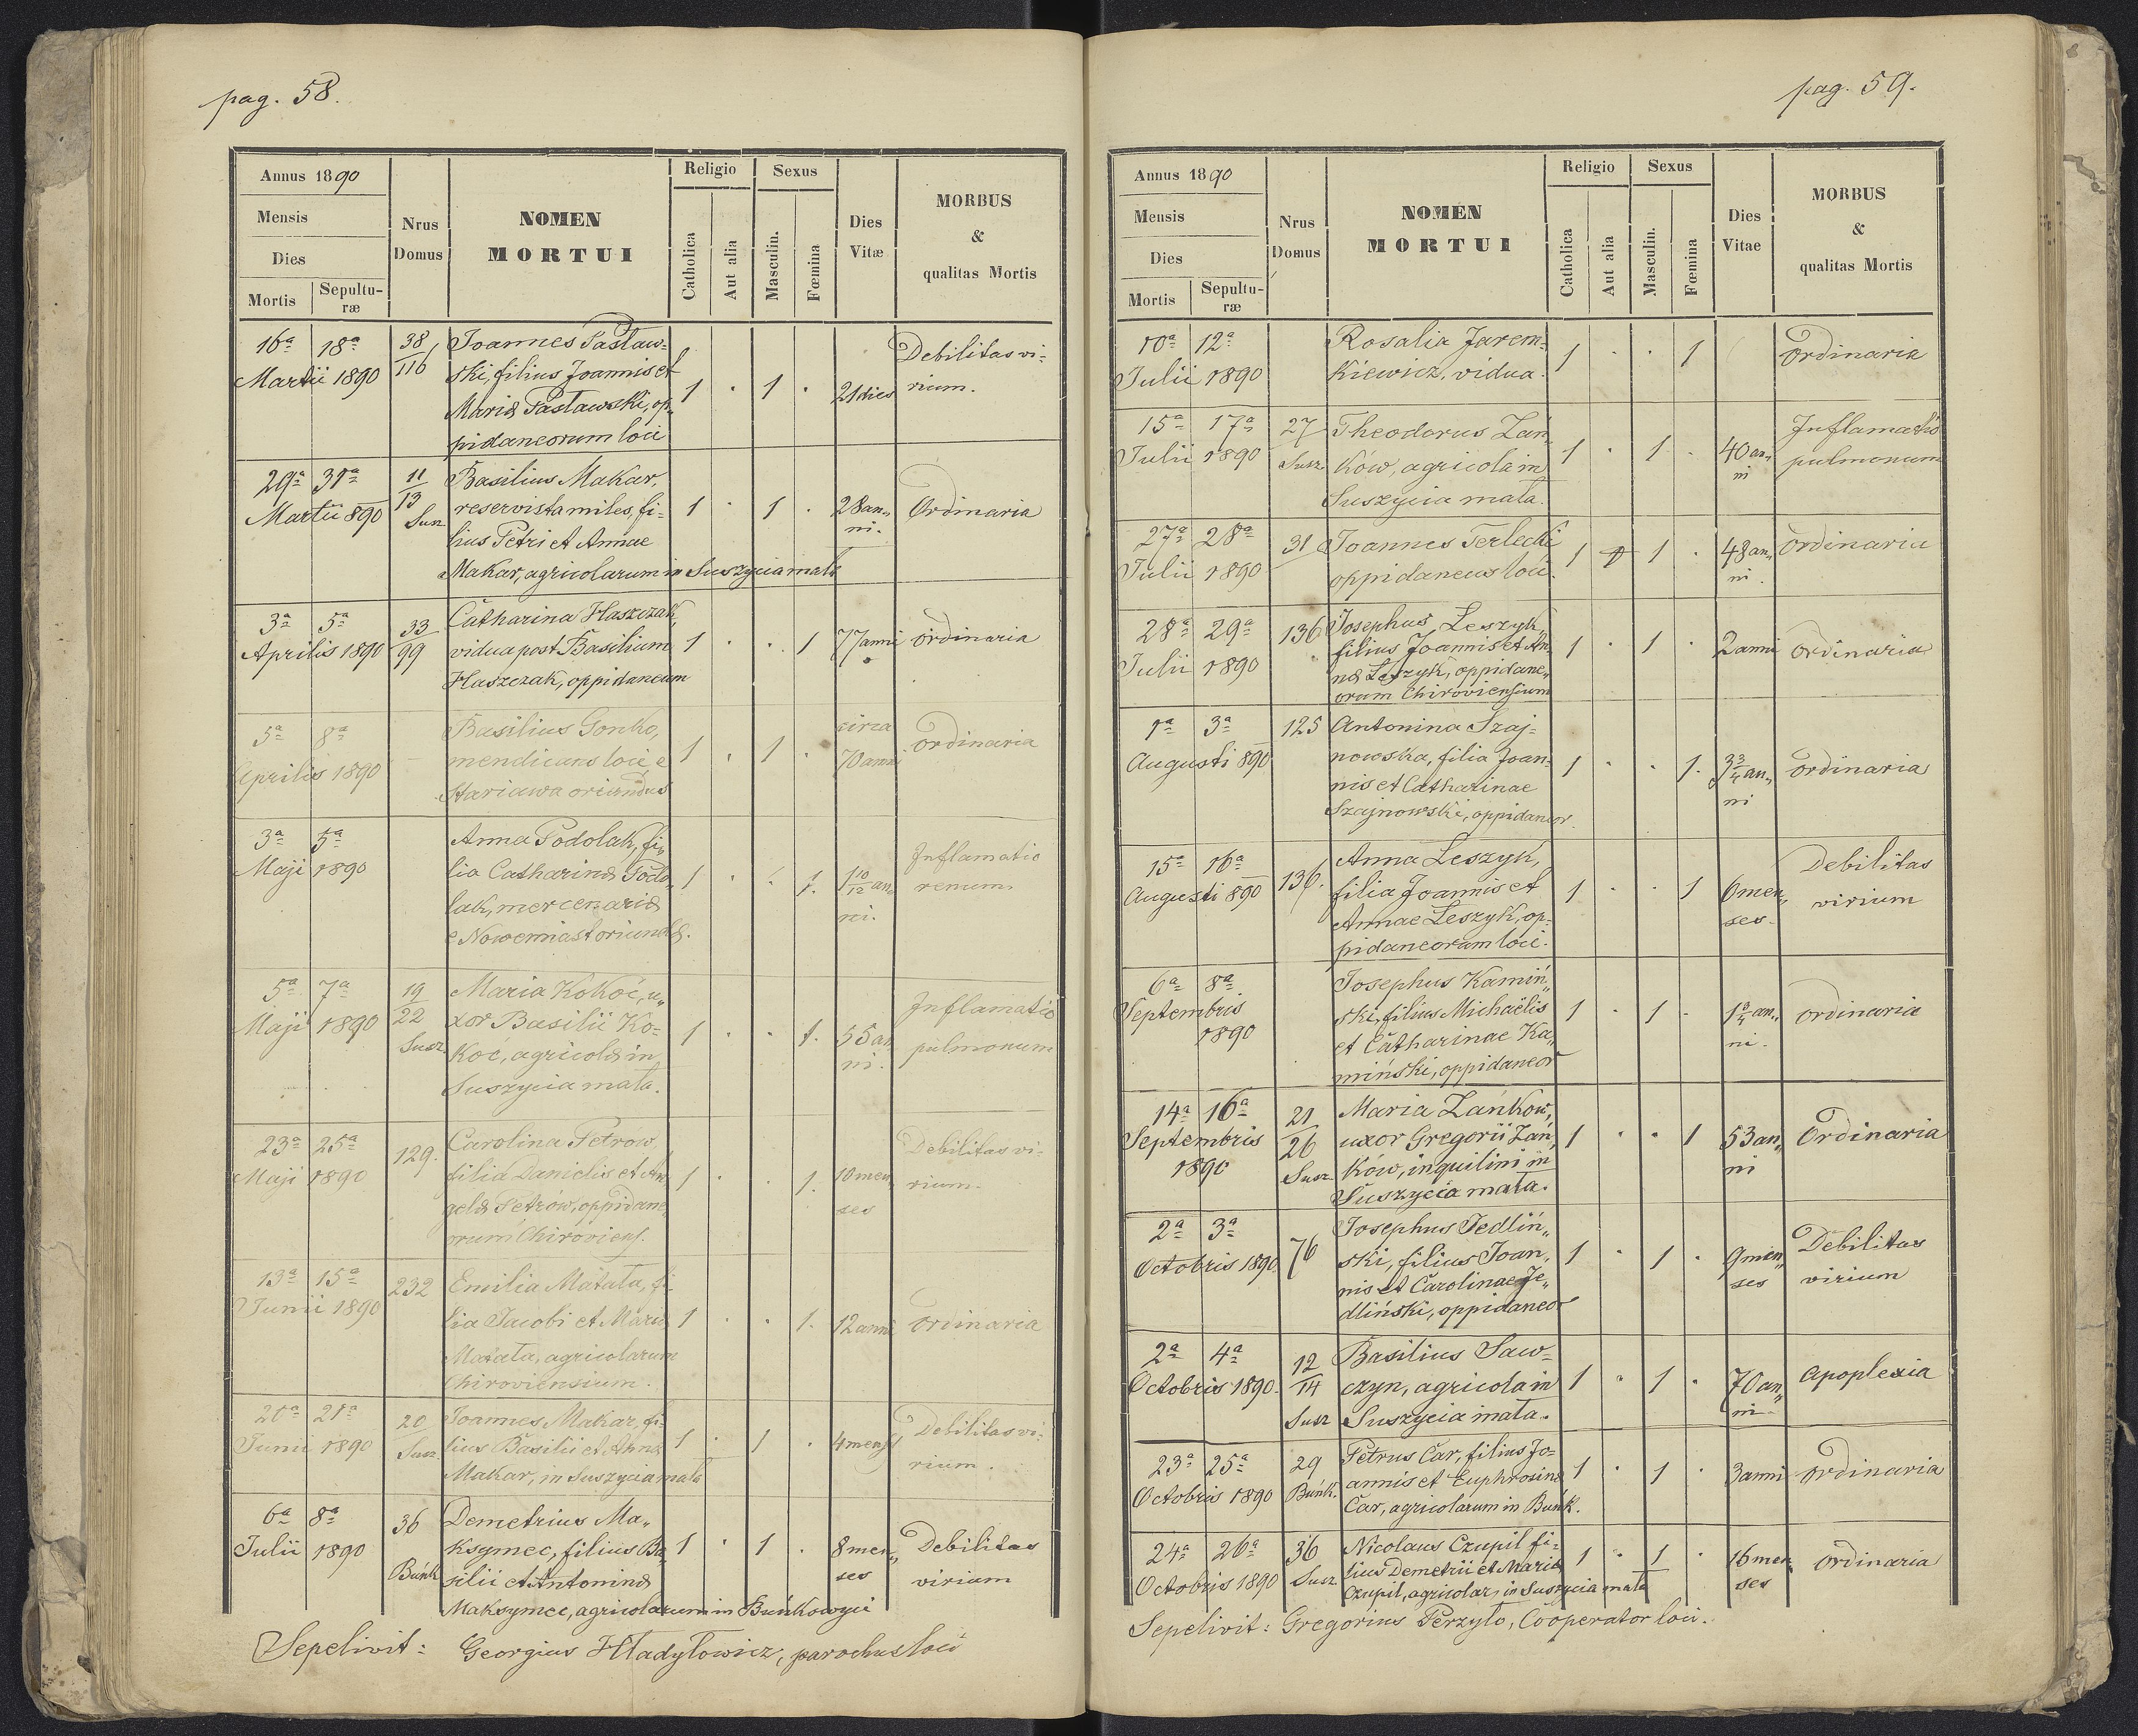 pag. 58.
Annus 1890
Mensis
Dies
Mortis
Sepultu-
ræ
Nrus
Domus
NOMEN
MORTUI
Religio
Catholica
Aut alia
Sexus
Masculin.
Fœmina
Dies
Vitæ
MORBUS
&
qualitas Mortis
16a 18a
Martii 1890
38
116
Joannes Pasław-
ski, filius Joannis et
Mariæ Pasławski, op-
pidaneorum loci
1 . 1 .
21 dies
Debilitas vi-
rium.
29a 31a
Martii 890
11
13
Susz
Basilius Makar,
reservista miles, fi-
lius Petri et Annae
Makar, agricolarum in Suszycia mała
1 . 1 .
28 an-
ni.
Ordinaria
3a 5a
Aprilis 1890
33
99
Catharina Haszczak,
vidua post Basilium
Haszczak, oppidaneum
1 . . 1
77 anni
ordinaria
5a 8a
Aprilis 1890
Basilius Gonko,
mendicans loci, e
Stariawa oriundus
1 . 1 .
circa
70 anni
ordinaria
3a 5a
Maji 1890
Anna Podolak, fi-
lia Catharinæ Podo-
lak, mercenariæ
e Nowemiasto riundæ.
1 . . 1.
1 10/12 an-
ni.
Inflamatio
renum.
5a 7a
Maji 1890
19
22
Susz.
Maria Kokoć, u-
xor Basilii Ko-
koć, agricolæ in
Suszycia mała.
1 . . 1.
55 an
ni.
Inflamatio
pulmonum
23a 25a
Maji 1890
129.
Carolina Petrów
filia Danielis et An
gelæ Petrów, oppidane-
orum Chiroviens.
1 . . 1.
10 men-
ses
Debilitas vi-
rium.
13a 15a
Junii 1890
232
Emilia Matała, fi-
lia Jacobi et Mariæ
Matała, agricolarum
Chiroviensium.
1 . . 1.
12 anni
ordinaria
20a 21a
Junii 1890
20
Susz.
Joannes Makar, fi-
lius Basilii et Annæ
Makar, in Suszycia mała
1 . 1 .
4 mens
Debilitas vi-
rium.
6a 8a
Julii 1890
36
Buńk
Demetrius Ma-
ksymec, filius Ba-
silii et Antoninæ
Maksymec, agricolarum in Buńkowyci
1 . 1 .
8 men-
ses
Debilitas
virium
Sepelivit: Georgius Hładyłowicz, parochus loci
pag. 59.
Annus 1890
Mensis
Dies
Mortis
Sepultu-
ræ
Nrus
Domus
NOMEN
MORTUI
Religio
Catholica
Aut alia
Sexus
Masculin.
Fœmina
Dies
Vitae
MORBUS
&
qualitas Mortis
10a 12a
Julii 1890
Rosalia Jarem-
kiewicz, vidua.
1 . . 1
ordinaria
15a 17a
Julii 1890
27
Susz.
Theodorus Zań-
ków, agricola in
Suszycia mała.
1 . 1 .
40 an-
ni
Inflamatio
pulmonum
27a 28a
Julii 1890
31
Joannes Terlecki
oppidaneus loci.
1 1 .
48 an-
ni.
ordinaria
28a 29a
Julii 1890
136
Josephus Leszyk,
filius Joannis et An-
næ Leszyk, oppidane-
orum Chiroviensium
1 . 1 .
2 anni
ordinaria
1a 3a
Augusti 890
125
Antonina Szaj-
nowska, filia Joan-
nis et Catharinae
Szajnowski, oppidaneor.
1 . . 1.
3 3/4 an-
ni
ordinaria
15a 16a
Augusti 890
136.
Anna Leszyk,
filia Joannis et
Annae Leszyk, op-
pidaneorum loci.
1 . . 1
6 men-
ses.
Debilitas
virium
6a 8a
Septembris
1890
Josephus Kamiń-
ski, filius Michaëlis
et Catharinae Ka-
miński, oppidaneor
1 . 1 .
1 3/4 an-
ni.
ordinaria
14a 16a
Septembris
1890
21
26
Susz.
Maria Zańków,
uxor Gregorii Zań-
ków, inquilini in
Suszycia mała.
1 . . 1
53 an-
ni
Ordinaria
2a 3a
Octobris 1890
76
Josephus Jedliń-
ski, filius Joan-
nis et Carolinae Je-
dliński, oppidaneor
1 . 1 .
9 men-
ses
Debilitas
virium
2a 4a
Octobris 1890.
12
14
Susz
Basilius Saw-
czyn, agricola in
Suszycia mała.
1 . 1 .
70 an-
ni.
apoplexia
23a 25a
Octobris 1890
29
Buńk.
Petrus Car, filius Jo-
annis et Euphrosinæ
Car, agricolarum in Buńk.
1 . 1 .
3 anni
ordinaria
24a 26a
Octobris 1890
36
Susz
Nicolaus Czupil fi-
lius Demetrii et Mariæ
Czupil, agricolar. in Suszycia mała
1 . 1 .
16 men-
ses
ordinaria
Sepelivit: Gregorius Perzyło, Cooperator loci.